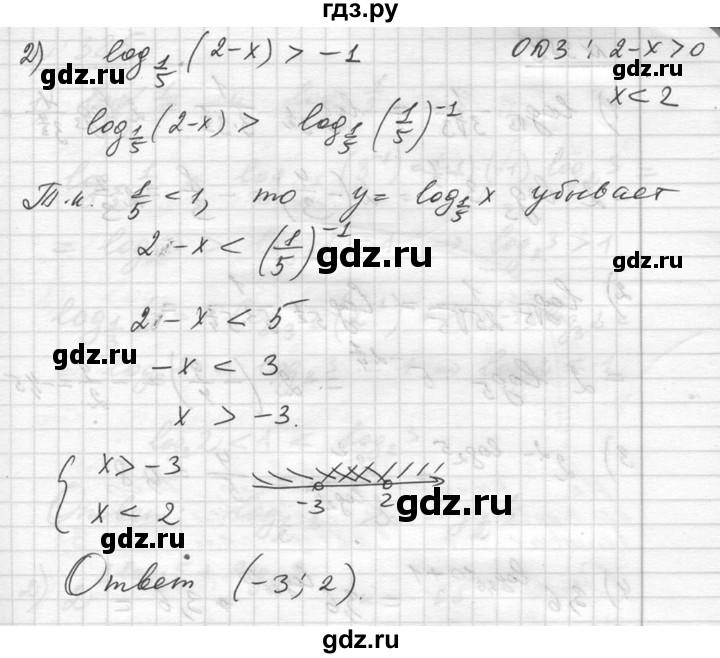 гдз.ру
2) log_{1/5}(2-x) > -1 ОДЗ: 2-x>0
gdz.ru gdz.ru
x<2
log_{1/5}(2-x) > log_{1/5}(1/5)^{-1}
Т.к. 1/5 <1, то y= log_{1/5}x убывает
2-x < (1/5)^{-1} gdz.ru gdz.ru
2-x < 5
gdz.ru
-x < 3
x > -3.
{ x>-3
x < 2
-3 2 gdz.ru
gdz.ru
Ответ (-3; 2).
gdz.ru gdz.ru
gdz.ru